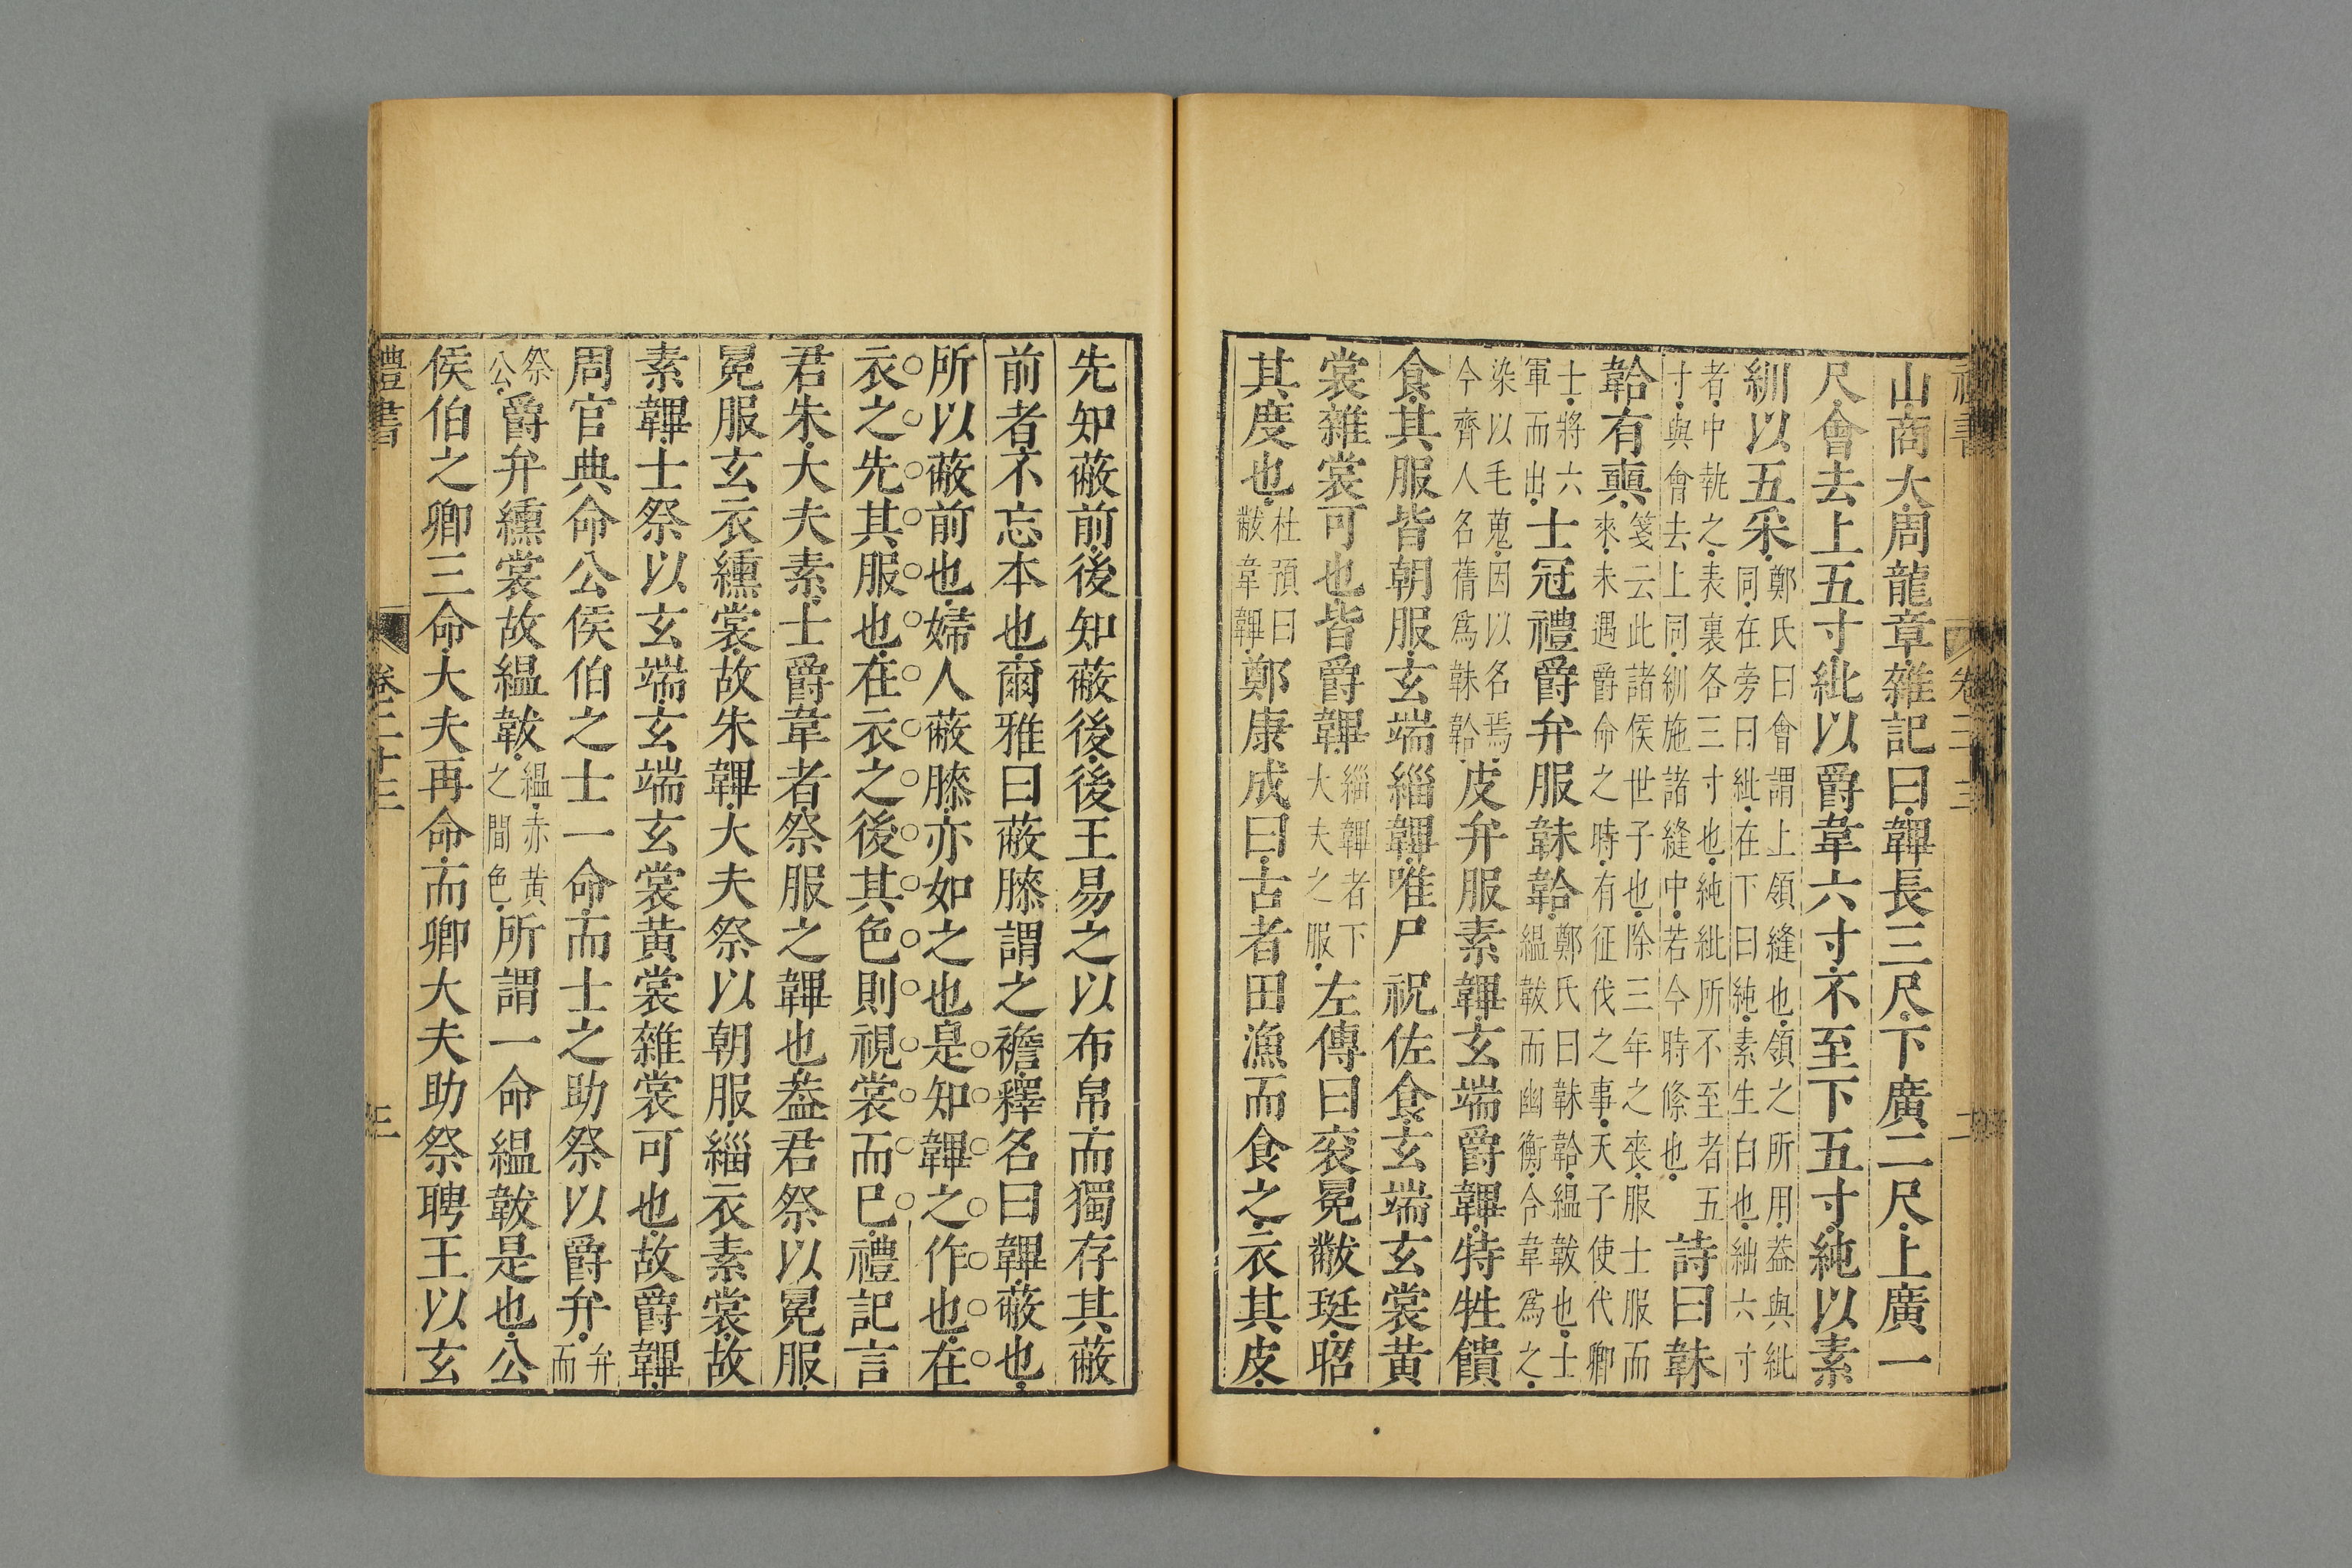 山商大周龍章雜記曰韠長三尺下廣二尺上廣一
尺會去上五寸紕以爵韋六寸不至下五寸純以素
紃以五采鄭氏曰會謂上領縫也領之所用葢與紕
同在旁曰紕在下曰純素生白也絀六寸
者中執之表裏各三寸也純紕所不至者五
寸與會去上同紃施諸縫中若今時絛也詩曰韎
韐有奭箋云此諸侯世子也除三年之喪服士服而
來未遇爵命之時有征伐之事天子使代卿
士將六
軍而出士冠禮爵弁服韎韐鄭氏曰韎韐緼韍也士
緼韍而幽衡合韋爲之
染以毛蒐因以名焉
今齊人名蒨爲韎韐皮弁服素韠玄端爵韠特牲饋
食其服皆朝服玄端緇韠唯尸祝佐食玄端玄裳黄
裳雜裳可也皆爵韠緇韠者下
大夫之服左傳曰衮冕黻珽昭
其度也杜預曰
黻韋韠鄭康成曰古者田漁而食之衣其皮
先知蔽前後知蔽後後王易之以布帛而獨存其蔽
前者不忘本也爾雅曰蔽膝謂之襜釋名曰韠蔽也
所以蔽前也婦人蔽膝亦如之也是知韠之作也在
衣之先其服也在衣之後其色則視裳而已禮記言
君朱大夫素士爵韋者祭服之韠也葢君祭以冕服
冕服玄衣纁裳故朱韠大夫祭以朝服緇衣素裳故
素韠士祭以玄端玄端玄裳黄裳雜裳可也故爵韠
周官典命公侯伯之士一命而士之助祭以爵弁弁
而
祭
公爵弁纁裳故緼韍緼赤黄
之間色所謂一命緼韍是也公
侯伯之卿三命大夫再命而卿大夫助祭聘王以玄
禮書
卷二十三
三